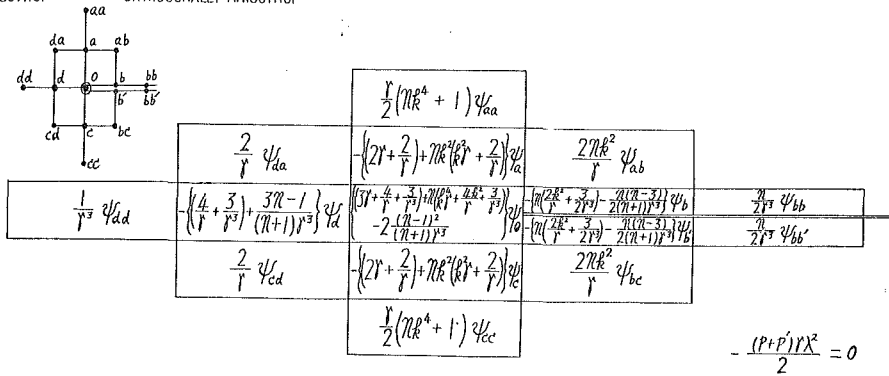 aa
da a ab
dd d O b bb
b' bb'
cd c bc
cc
r/2 (nk⁴ + 1) ψ_aa
2/r ψ_da -{(2r + 2/r) + nk²(k²r + 2/r)} ψ_a 2nk²/r ψ_ab
1/r³ ψ_dd -{(4/r + 3/r³) + (3n-1)/((n+1)r³)} ψ_d {(3r + 4/r + 3/r³) + n(k⁴r + 4k²/r + 3/r³) - 2 (n-1)²/((n+1)r³)} ψ_o -{n(2k²/r + 3/2r³) - n(n-3)/(2(n+1)r³)} ψ_b n/2r³ ψ_bb
-{n(2k²/r + 3/2r³) - n(n-3)/(2(n+1)r³)} ψ_b' n/2r³ ψ_bb'
2/r ψ_cd -{(2r + 2/r) + nk²(k²r + 2/r)} ψ_c 2nk²/r ψ_bc
r/2 (nk⁴ + 1) ψ_cc
- (P+P')rλ²/2 = 0